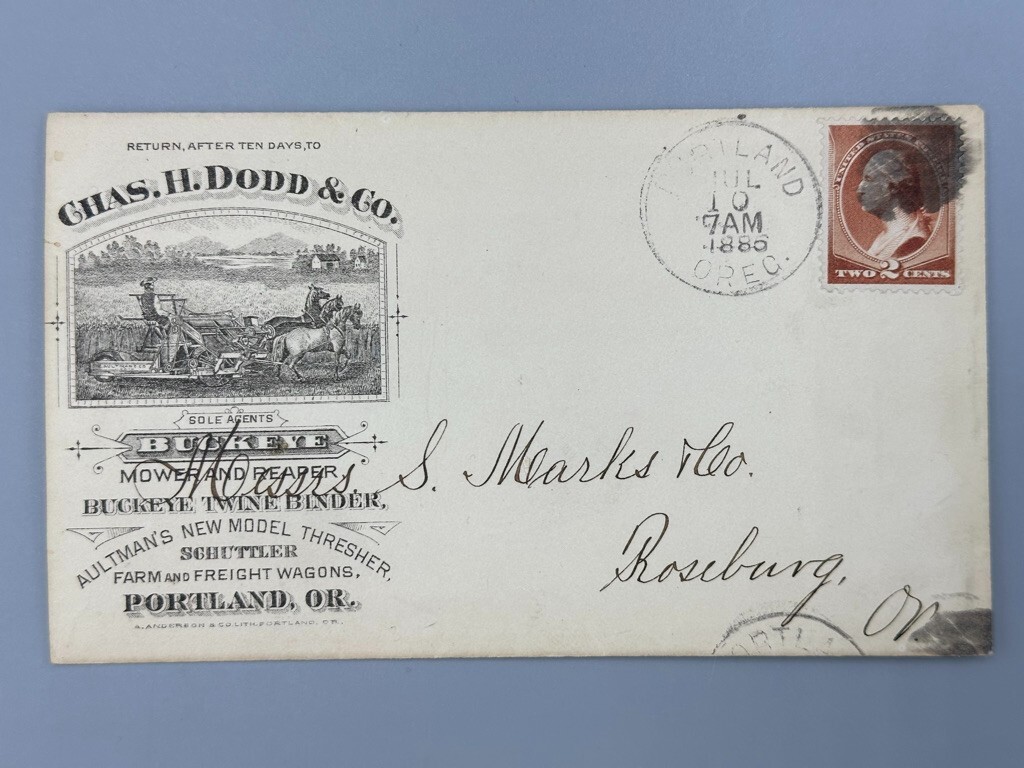 RETURN, AFTER TEN DAYS, TO
CHAS. H. DODD & CO.
SOLE AGENTS
BUCKEYE
MOWER AND REAPER
BUCKEYE TWINE BINDER,
AULTMAN'S NEW MODEL THRESHER,
SCHUTTLER
FARM AND FREIGHT WAGONS,
PORTLAND, OR.
A. ANDERSON & CO. LITH. PORTLAND, OR.
PORTLAND
JUL
10
7AM
1886
OREG.
UNITED STATES
TWO 2 CENTS
Messrs S. Marks & Co.
Roseburg,
Or.
ORTLA